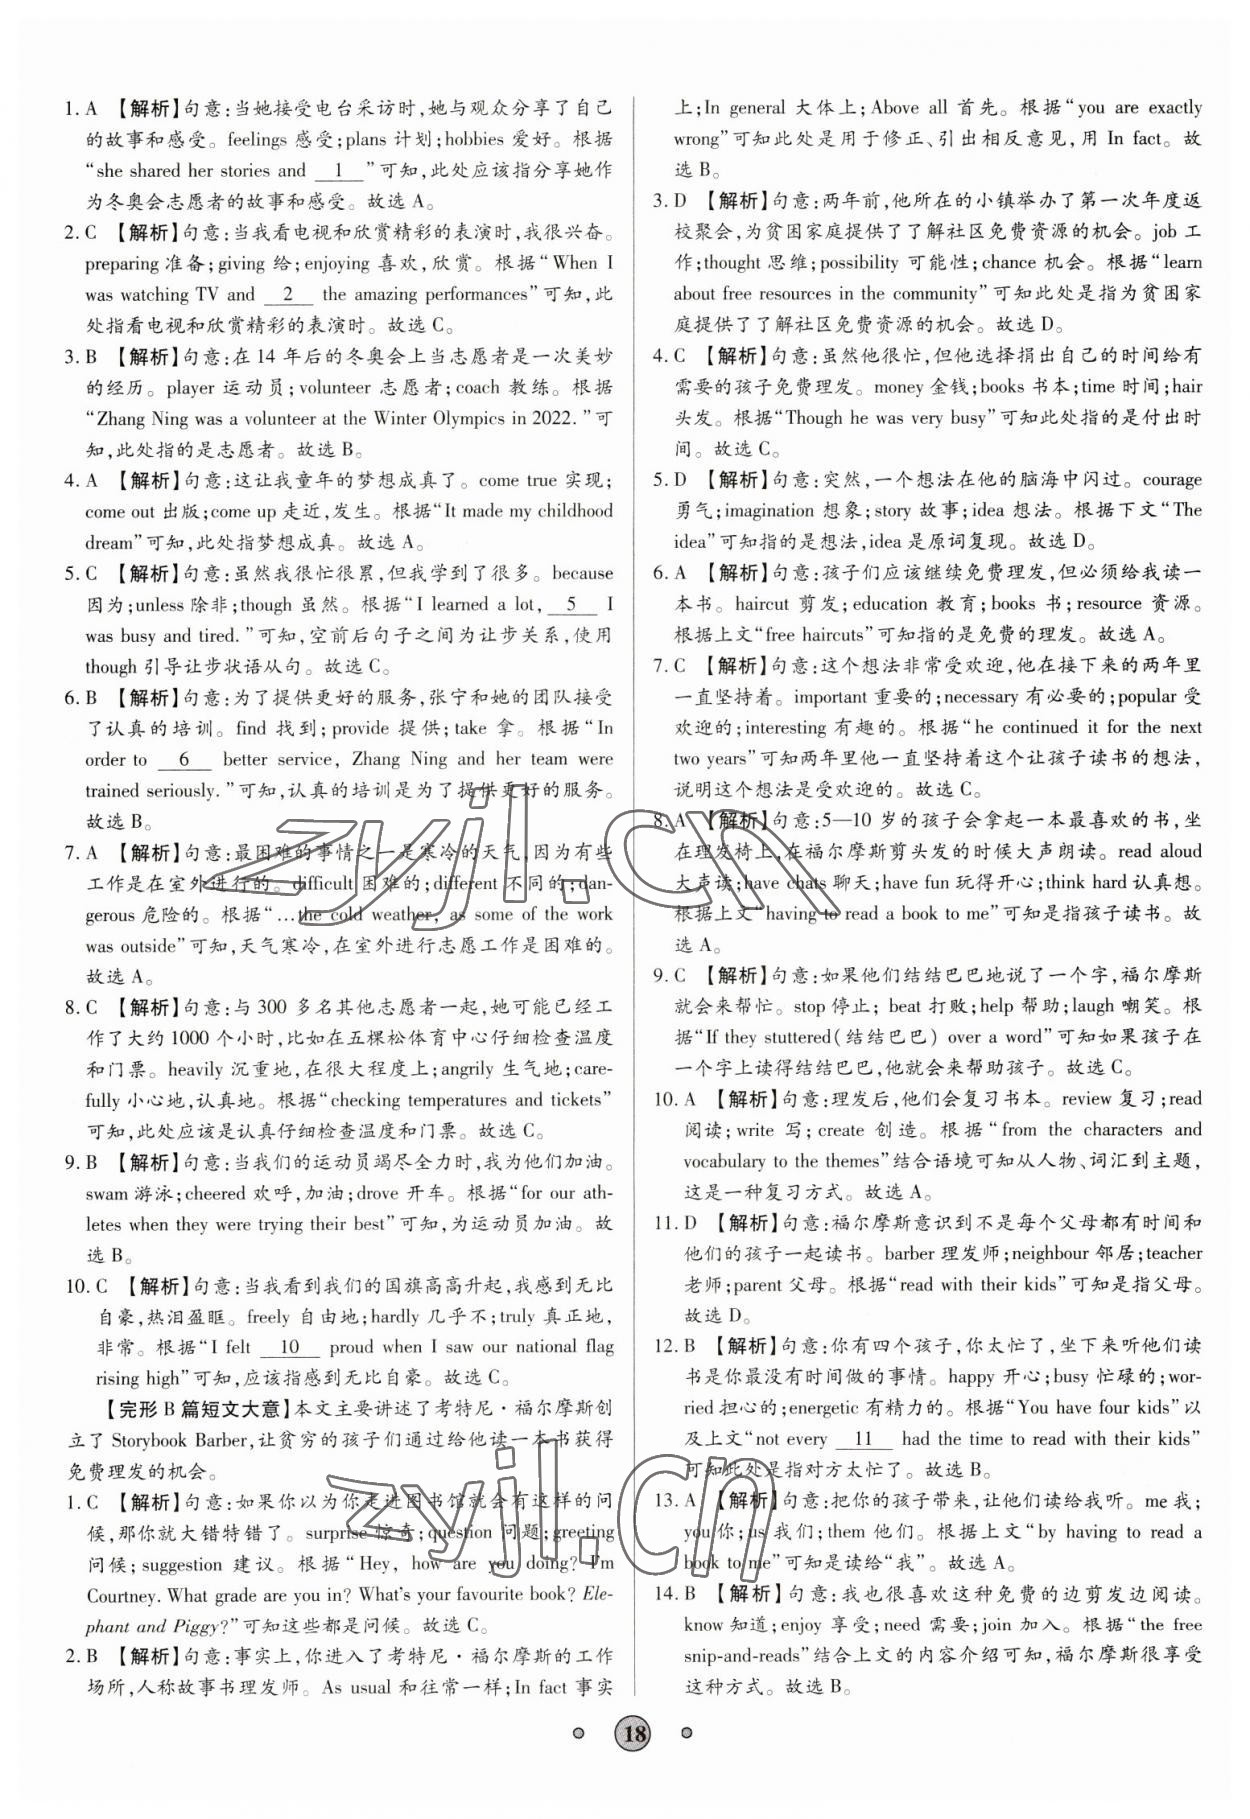 1. A 【解析】句意:当她接受电台采访时,她与观众分享了自己
的故事和感受。feelings 感受;plans 计划;hobbies 爱好。根据
“she shared her stories and 1 ”可知,此处应该指分享她作
为冬奥会志愿者的故事和感受。故选 A。
2. C 【解析】句意:当我看电视和欣赏精彩的表演时,我很兴奋。
preparing 准备;giving 给;enjoying 喜欢,欣赏。根据“When I
was watching TV and 2 the amazing performances”可知,此
处指看电视和欣赏精彩的表演时。故选 C。
3. B 【解析】句意:在 14 年后的冬奥会上当志愿者是一次美妙
的经历。player 运动员;volunteer 志愿者;coach 教练。根据
“Zhang Ning was a volunteer at the Winter Olympics in 2022.”可
知,此处指的是志愿者。故选 B。
4. A 【解析】句意:这让我童年的梦想成真了。come true 实现;
come out 出版;come up 走近,发生。根据“It made my childhood
dream”可知,此处指梦想成真。故选 A。
5. C 【解析】句意:虽然我很忙很累,但我学到了很多。because
因为;unless 除非;though 虽然。根据“I learned a lot, 5 I
was busy and tired.”可知,空前后句子之间为让步关系,使用
though 引导让步状语从句。故选 C。
6. B 【解析】句意:为了提供更好的服务,张宁和她的团队接受
了认真的培训。find 找到;provide 提供;take 拿。根据“In
order to 6 better service, Zhang Ning and her team were
trained seriously.”可知,认真的培训是为了提供更好的服务。
故选 B。
7. A 【解析】句意:最困难的事情之一是寒冷的天气,因为有些
工作是在室外进行的。difficult 困难的;different 不同的;dan-
gerous 危险的。根据“…the cold weather, as some of the work
was outside”可知,天气寒冷,在室外进行志愿工作是困难的。
故选 A。
8. C 【解析】句意:与 300 多名其他志愿者一起,她可能已经工
作了大约 1000 个小时,比如在五棵松体育中心仔细检查温度
和门票。heavily 沉重地,在很大程度上;angrily 生气地;care-
fully 小心地,认真地。根据“checking temperatures and tickets”
可知,此处应该是认真仔细检查温度和门票。故选 C。
9. B 【解析】句意:当我们的运动员竭尽全力时,我为他们加油。
swam 游泳;cheered 欢呼,加油;drove 开车。根据“for our ath-
letes when they were trying their best”可知,为运动员加油。故
选 B。
10. C 【解析】句意:当我看到我们的国旗高高升起,我感到无比
自豪,热泪盈眶。freely 自由地;hardly 几乎不;truly 真正地,
非常。根据“I felt 10 proud when I saw our national flag
rising high”可知,应该指感到无比自豪。故选 C。
【完形 B 篇短文大意】本文主要讲述了考特尼·福尔摩斯创
立了 Storybook Barber,让贫穷的孩子们通过给他读一本书获得
免费理发的机会。
1. C 【解析】句意:如果你以为你走进图书馆就会有这样的问
候,那你就大错特错了。surprise 惊奇;question 问题;greeting
问候;suggestion 建议。根据“Hey, how are you doing? I'm
Courtney. What grade are you in? What's your favourite book? Ele-
phant and Piggy?”可知这些都是问候。故选 C。
2. B 【解析】句意:事实上,你进入了考特尼·福尔摩斯的工作
场所,人称故事书理发师。As usual 和往常一样;In fact 事实
上;In general 大体上;Above all 首先。根据“you are exactly
wrong”可知此处是用于修正、引出相反意见,用 In fact。故
选 B。
3. D 【解析】句意:两年前,他所在的小镇举办了第一次年度返
校聚会,为贫困家庭提供了了解社区免费资源的机会。job 工
作;thought 思维;possibility 可能性;chance 机会。根据“learn
about free resources in the community”可知此处是指为贫困家
庭提供了了解社区免费资源的机会。故选 D。
4. C 【解析】句意:虽然他很忙,但他选择捐出自己的时间给有
需要的孩子免费理发。money 金钱;books 书本;time 时间;hair
头发。根据“Though he was very busy”可知此处指的是付出时
间。故选 C。
5. D 【解析】句意:突然,一个想法在他的脑海中闪过。courage
勇气;imagination 想象;story 故事;idea 想法。根据下文“The
idea”可知指的是想法,idea 是原词复现。故选 D。
6. A 【解析】句意:孩子们应该继续免费理发,但必须给我读一
本书。haircut 剪发;education 教育;books 书;resource 资源。
根据上文“free haircuts”可知指的是免费的理发。故选 A。
7. C 【解析】句意:这个想法非常受欢迎,他在接下来的两年里
一直坚持着。important 重要的;necessary 有必要的;popular 受
欢迎的;interesting 有趣的。根据“he continued it for the next
two years”可知两年里他一直坚持着这个让孩子读书的想法,
说明这个想法是受欢迎的。故选 C。
8. A 【解析】句意:5—10 岁的孩子会拿起一本最喜欢的书,坐
在理发椅上,在福尔摩斯剪头发的时候大声朗读。read aloud
大声读;have chats 聊天;have fun 玩得开心;think hard 认真想。
根据上文“having to read a book to me”可知是指孩子读书。故
选 A。
9. C 【解析】句意:如果他们结结巴巴地说了一个字,福尔摩斯
就会来帮忙。stop 停止; beat 打败;help 帮助;laugh 嘲笑。根
据“If they stuttered(结结巴巴) over a word”可知如果孩子在
一个字上读得结结巴巴,他就会来帮助孩子。故选 C。
10. A 【解析】句意:理发后,他们会复习书本。review 复习;read
阅读;write 写;create 创造。根据“from the characters and
vocabulary to the themes”结合语境可知从人物、词汇到主题,
这是一种复习方式。故选 A。
11. D 【解析】句意:福尔摩斯意识到不是每个父母都有时间和
他们的孩子一起读书。barber 理发师;neighbour 邻居;teacher
老师;parent 父母。根据“read with their kids”可知是指父母。
故选 D。
12. B 【解析】句意:你有四个孩子,你太忙了,坐下来听他们读
书是你最没有时间做的事情。happy 开心;busy 忙碌的;wor-
ried 担心的;energetic 有精力的。根据“You have four kids”以
及上文“not every 11 had the time to read with their kids”
可知此处是指对方太忙了。故选 B。
13. A 【解析】句意:把你的孩子带来,让他们读给我听。me 我;
you 你;us 我们;them 他们。根据上文“by having to read a
book to me”可知是读给“我”。故选 A。
14. B 【解析】句意:我也很喜欢这种免费的边剪发边阅读。
know 知道;enjoy 享受;need 需要;join 加入。根据“the free
snip-and-reads”结合上文的内容介绍可知,福尔摩斯很享受
这种方式。故选 B。
18
zyjl.cn
zyjl.cn